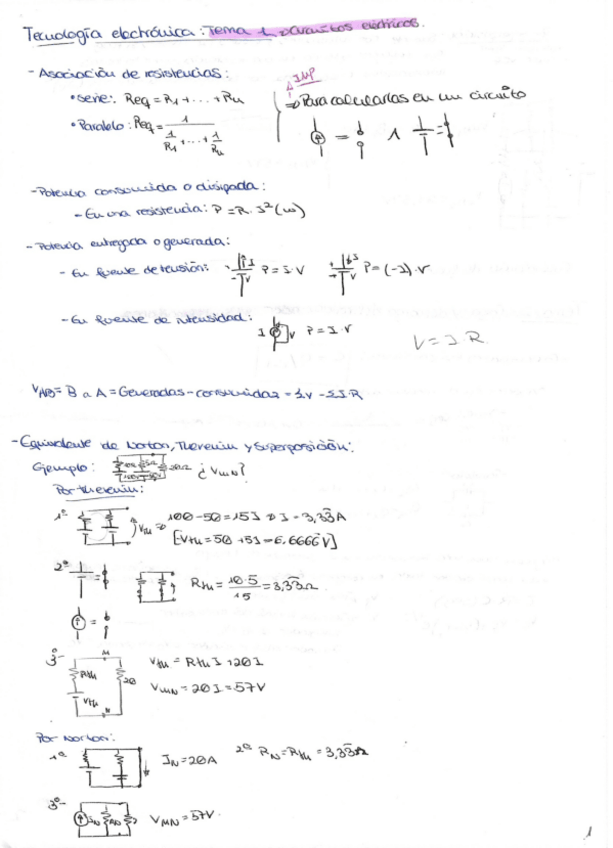 Tecnología electrónica: Tema 1. Circuitos eléctricos.
- Asociación de resistencias:
• Serie: Req = R1 + ... + Rn
• Paralelo: Req = 1 / (1/R1 + ... + 1/Rn)
IMP
Para calcularlas en un circuito
- Potencia consumida o disipada:
- En una resistencia: P = R · I² (w)
- Potencia entregada o generada:
- En fuente de tensión: P = I · V P = (-I) · V
- En fuente de intensidad: I V P = I · V
V = I · R
VAB = B a A = Generadas - consumidas = Σv - ΣI·R
- Equivalente de Norton, Thevenin y Superposición:
Ejemplo: 20Ω ¿VMN?
Por thevenin:
1º Vth ⇒ 100 - 50 = 15I ⇒ I = 3,33A
[-Vth = 50 + 5I = 6,6666V]
2º Rth = 10·5 / 15 = 3,33Ω
3º- M Rth 20 Vth N Vth = Rth I + 20I
VMN = 20I = 57V
Por Norton:
1º IN = 20A 2º RN = Rth = 3,33Ω
3º- IN RN VMN = 57V
1